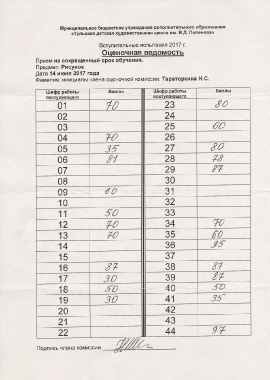 Муниципальное бюджетное учреждение дополнительного образования
«Тульская детская художественная школа им. В.Д. Поленова»
Вступительные испытания 2017 г.
Оценочная ведомость
Прием на сокращенный срок обучения.
Предмет: Рисунок
Дата 14 июня 2017 года
Фамилия, инициалы члена оценочной комиссии: Тараторкина Н.С.
Шифр работы поступающего Баллы Шифр работы поступающего Баллы
01 70 23 80
02 24
03 25 60
04 70 26
05 35 27 80
06 81 28 78
07 29 87
08 30
09 60 31
10 32
11 50 33
12 70 34 70
13 70 35 60
14 36 95
15 37
16 87 38 87
17 30 39 87
18 50 40 50
19 30 41 35
20 42
21 43
22 44 97
Подпись члена комиссии